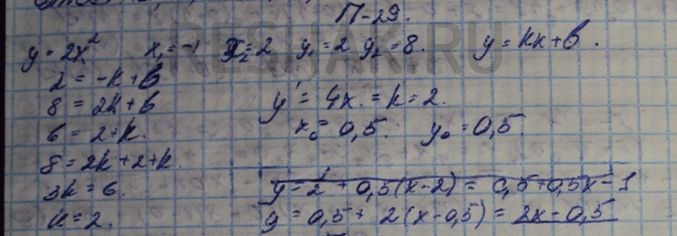 П-29.
y = 2x² x₁ = -1 x₂ = 2 y₁ = 2 y₂ = 8. y = kx + b.
2 = -k + b
8 = 2k + b
y' = 4x = k = 2.
b = 2 + k.
x₀ = 0,5. y₀ = 0,5.
8 = 2k + 2 + k
3k = 6.
y = 2 + 0,5(x-2) = 0,5 + 0,5x - 1
k = 2.
y = 0,5 + 2(x-0,5) = 2x - 0,5
RESHAK.RU